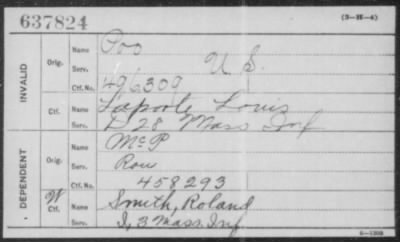 637824 (3-H-4)
INVALID
Orig. Name Poo
Serv. U S.
Ctf. No. 496309
Ctf. Name Lapoote Louis
Serv. D 28 Mass Inf
DEPENDENT
Orig. Name McP
Serv. Rou
Ctf. No. 458293
W Ctf. Name Smith, Roland
Serv. I, 3 Mass. Inf.